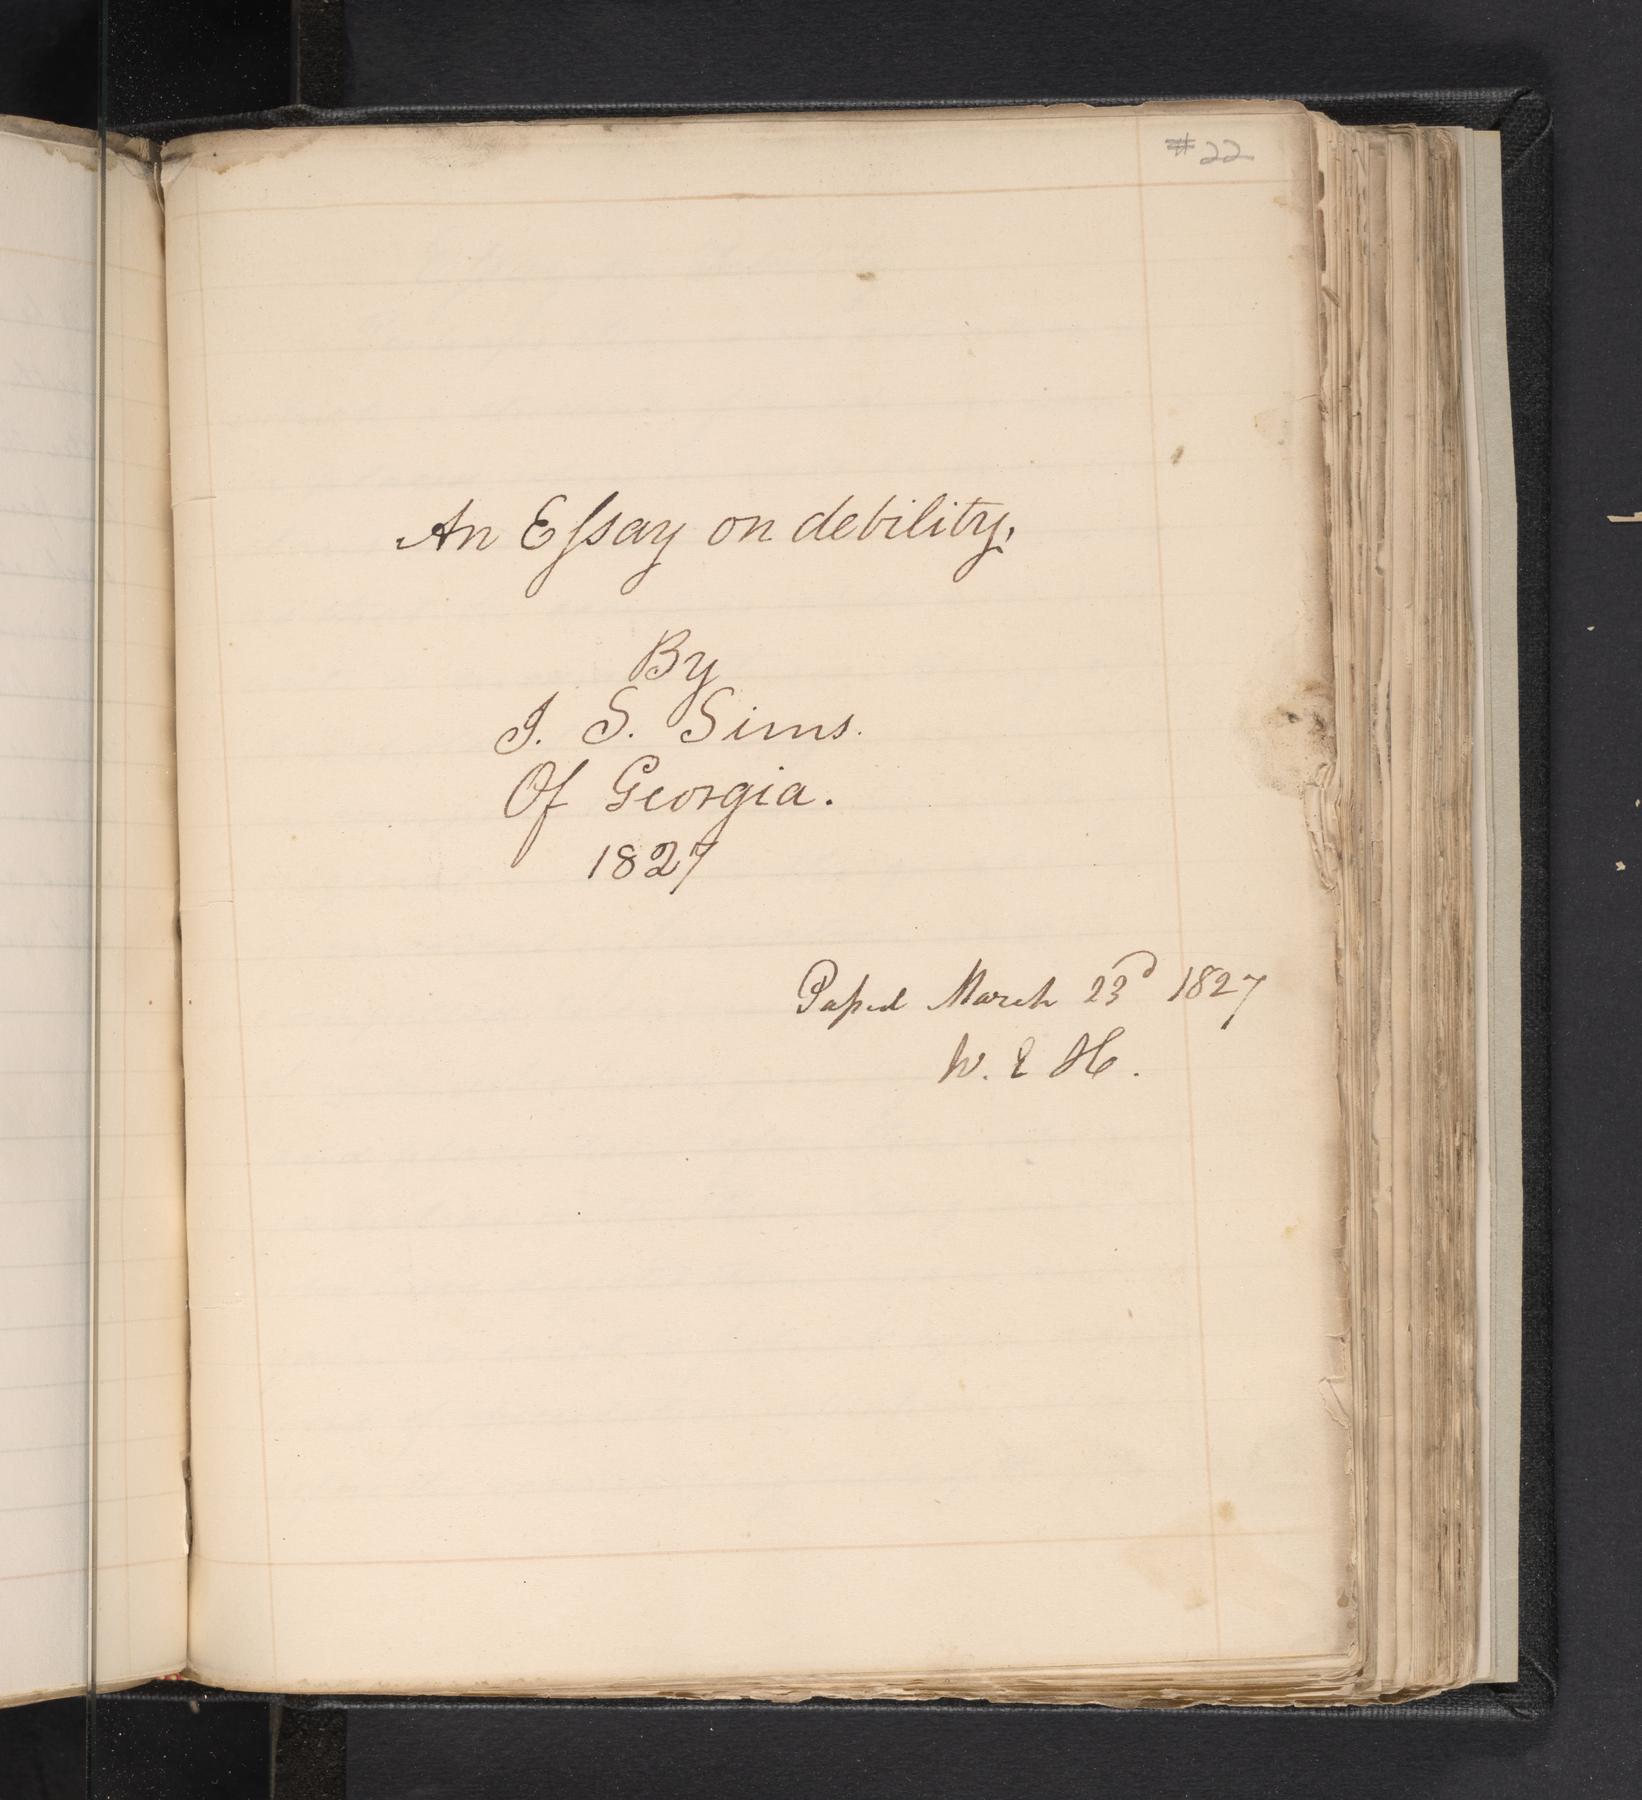 #22
An Eſsay on debility.
By
J. S. Sims.
Of Georgia.
1827
Paſsed March 23d 1827
W. E H.